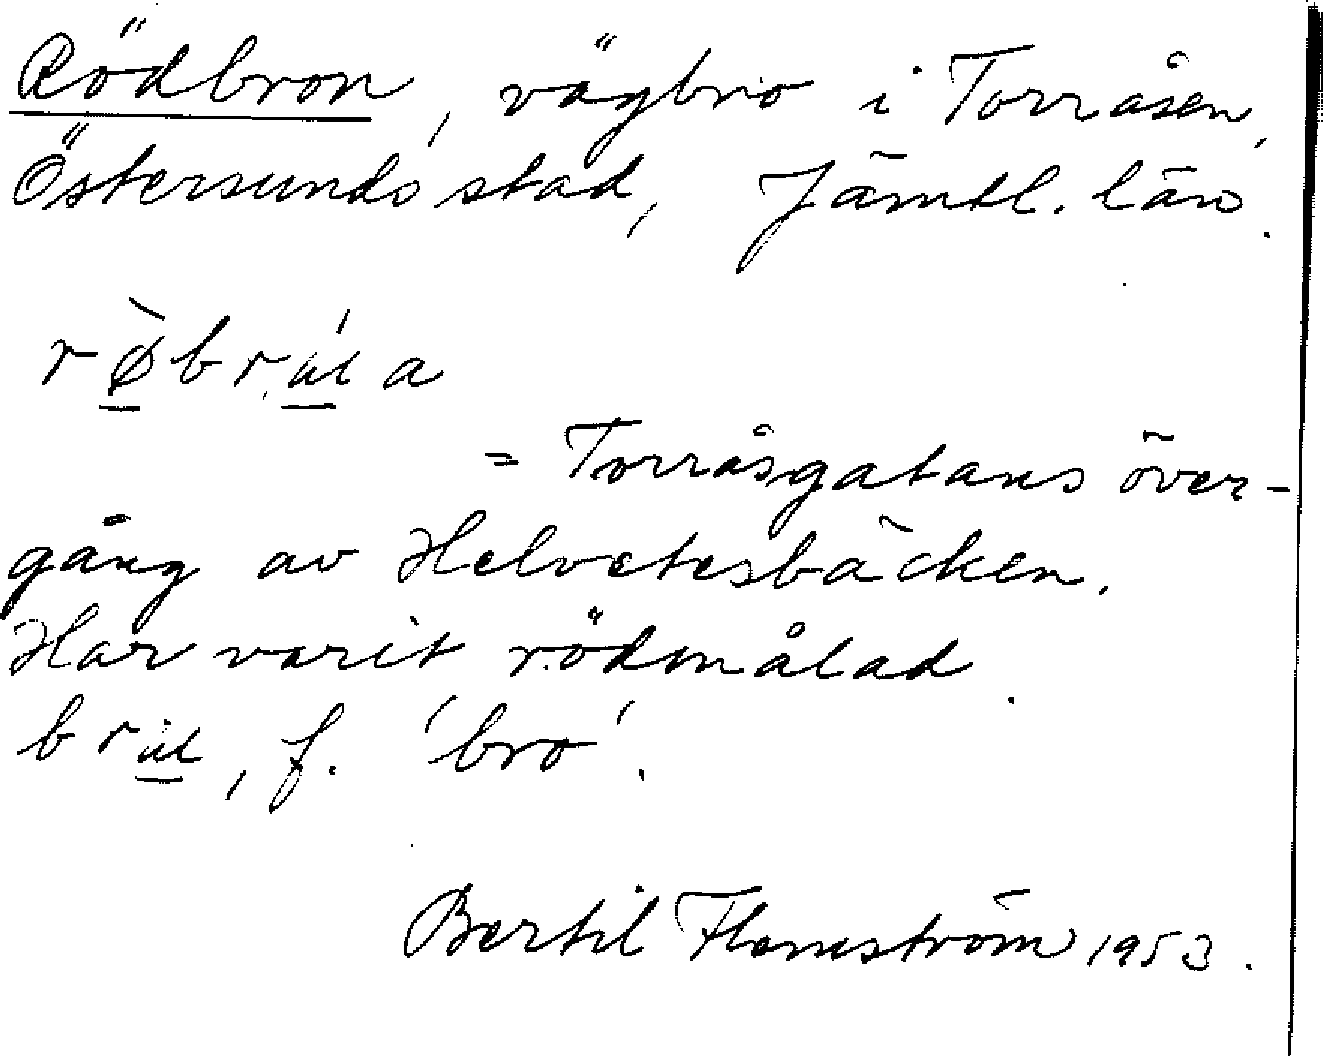 Rödbron, vägbro i Torråsen,
Östersunds stad, Jämtl. län.
rø̀brúa
= Torråsgatans över-
gång av Helvetesbäcken.
Har varit rödmålad.
bru, f. 'bro'.
Bertil Flemström 1953.